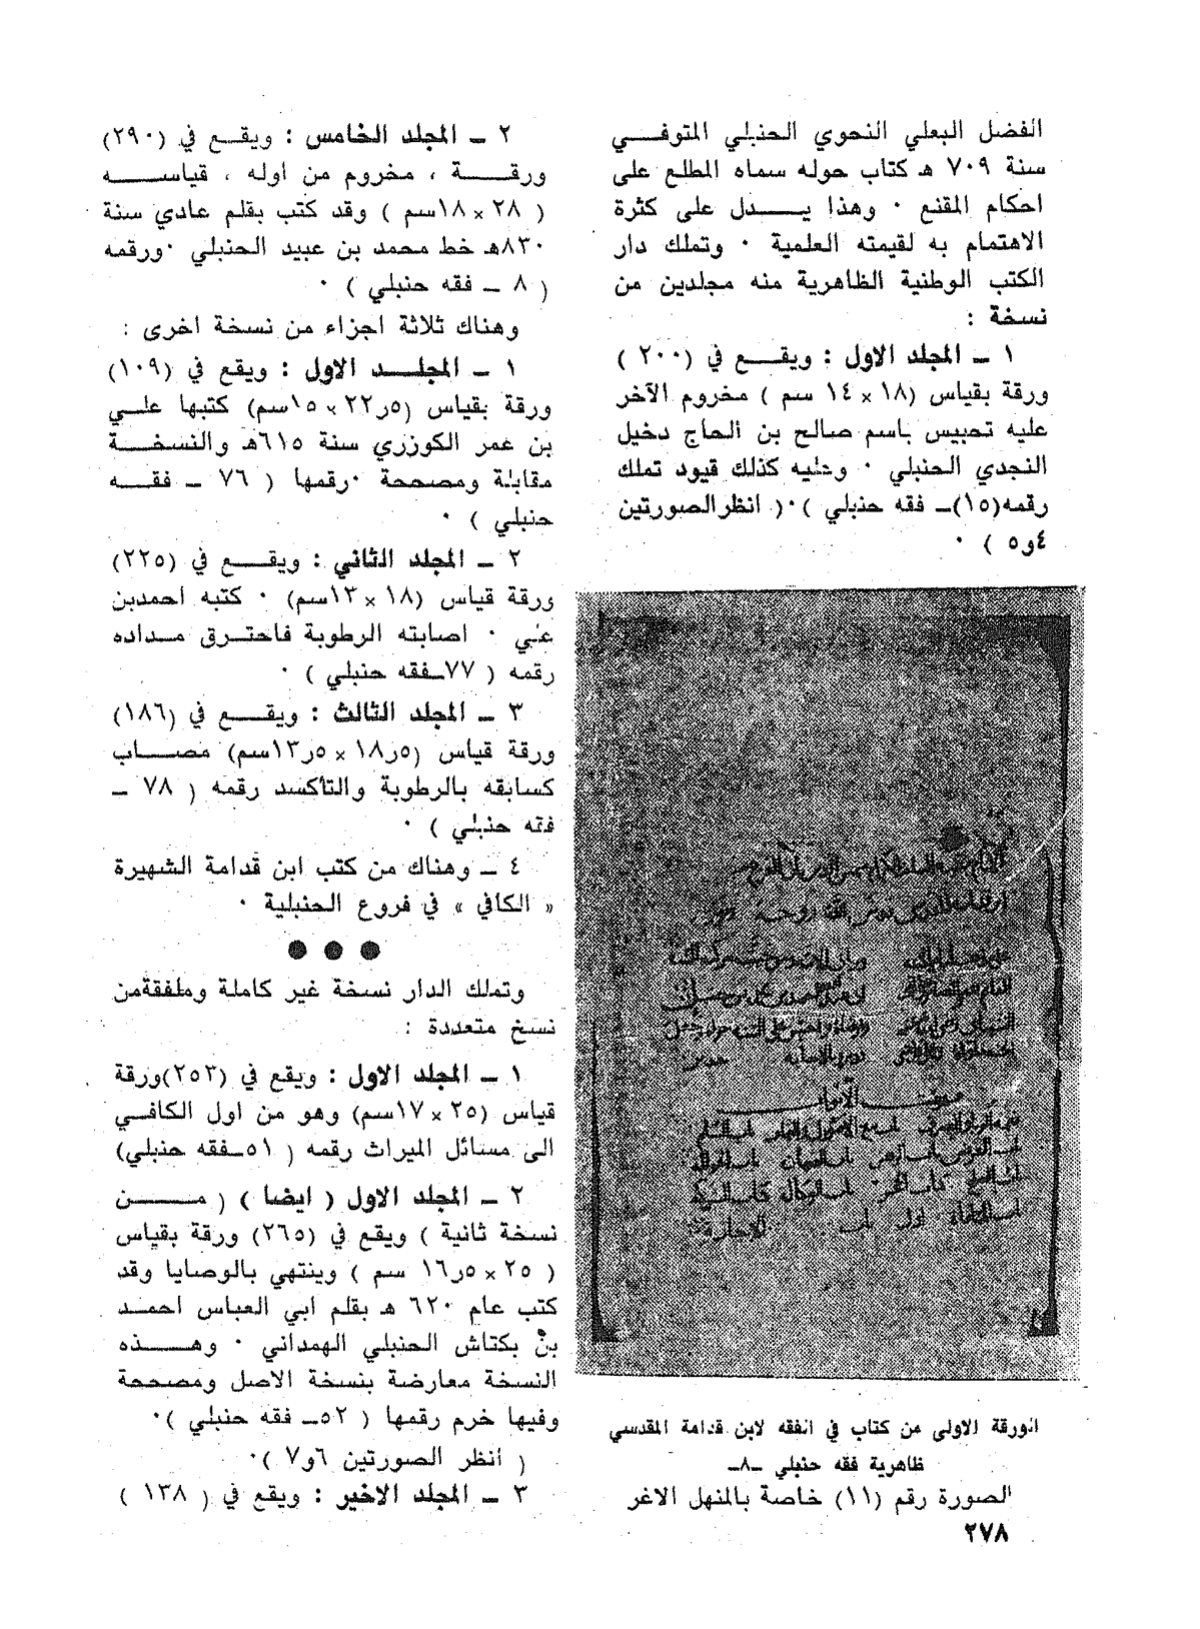 الفضل البعلي النحوي الحنبلي المتوفـــي
سنة ٧٠٩ هـ كتاب حوله سماه المطلع على
احكام المقنع ٠ وهذا يـــــدل على كثرة
الاهتمام به لقيمته العلمية ٠ وتملك دار
الكتب الوطنية الظاهرية منه مجلدين من
نسخة :
١ ــ المجلد الاول : ويقـــع في (٢٠٠ )
ورقة بقياس (١٨ × ١٤ سم ) مخروم الآخر
عليه تحبيس باسم صالح بن الحاج دخيل
النجدي الحنبلي ٠ وعليه كذلك قيود تملك
رقمه(١٥)ــ فقه حنبلي )٠( انظرالصورتين
٤و٥ ) ٠
انورقة الاولى من كتاب في انفقه لابن قدامة المقدسي
ظاهرية فقه حنبلي ــ٨ــ
الصورة رقم (١١) خاصة بالمنهل الاغر
٢٧٨
٢ ــ المجلد الخامس : ويقـــع في (٢٩٠)
ورقـــــة ، مخروم من اوله ، قياســـه
( ٢٨ × ١٨سم ) وقد كتب بقلم عادي سنة
٨٣٠هـ خط محمد بن عبيد الحنبلي ٠ورقمه
( ٨ ــ فقه حنبلي ) ٠
وهناك ثلاثة اجزاء من نسخة اخرى :
١ ــ المجلـــد الاول : ويقع في (١٠٩)
ورقة بقياس (٥ر٢٢ × ١٥سم) كتبها علـــي
بن عمر الكوزري سنة ٦١٥هـ والنسخـــة
مقابلة ومصححة ٠رقمها ( ٧٦ ــ فقـــه
حنبلي ) ٠
٢ ــ المجلد الثاني : ويقـــع في (٢٢٥)
ورقة قياس (١٨ × ١٣سم) ٠ كتبه احمدبن
علي ٠ اصابته الرطوبة فاحتـرق مــداده
رقمه ( ٧٧ــفقه حنبلي ) ٠
٣ ــ المجلد الثالث : ويقـــع في (١٨٦)
ورقة قياس (٥ر١٨ × ٥ر١٣سم) مصـــاب
كسابقه بالرطوبة والتأكسد رقمه ( ٧٨ ــ
فقه حنبلي ) ٠
٤ ــ وهناك من كتب ابن قدامة الشهيرة
« الكافي » في فروع الحنبلية ٠
وتملك الدار نسخة غير كاملة وملفقةمن
نسخ متعددة :
١ ــ المجلد الاول : ويقع في (٢٥٣)ورقة
قياس (٢٥ × ١٧سم) وهو من اول الكافـي
الى مسائل الميراث رقمه ( ٥١ــفقه حنبلي)
٢ ــ المجلد الاول ( ايضا ) ( مـــــن
نسخة ثانية ) ويقع في (٢٦٥) ورقة بقياس
( ٢٥ × ٥ر١٦ سم ) وينتهي بالوصايا وقد
كتب عام ٦٢٠ هـ بقلم ابي العباس احمــد
بن بكتاش الحنبلي الهمداني ٠ وهـــــذه
النسخة معارضة بنسخة الاصل ومصححة
وفيها خرم رقمها ( ٥٢ــ فقه حنبلي )٠
( أنظر الصورتين ٦و٧ )٠
٣ ــ المجلد الاخير : ويقع في ( ١٣٨ )